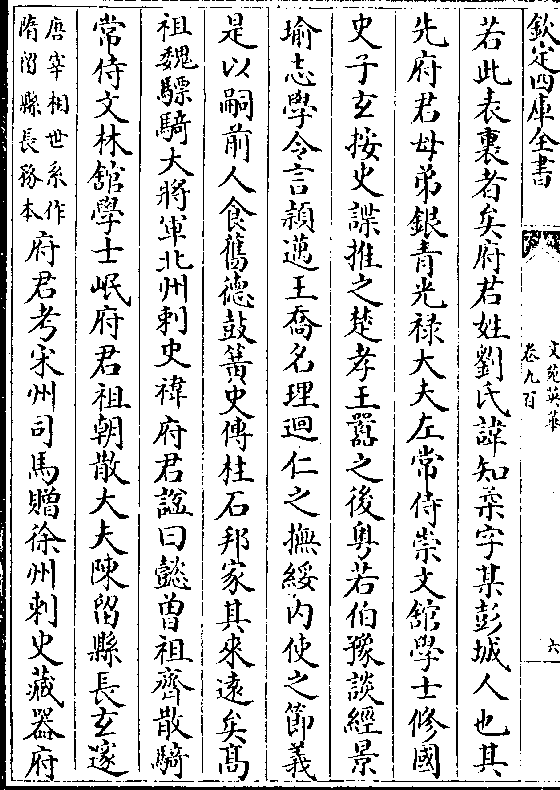 欽定四庫全書
文苑英華
卷九百
六
若此表裏者矣府君姓劉氏諱知柔字某彭城人也其
先府君母弟銀青光禄大夫左常侍崇文舘學士修國
史子玄按史諜推之楚孝王囂之後粤若伯豫談經景
瑜志學令言頴邁王喬名理迴仁之撫綏内使之節義
是以嗣前人食舊德鼓簧史傳柱石邦家其來遠矣髙
祖魏驃騎大將軍北州刺史禕府君諡曰懿曽祖齊散騎
常侍文林舘學士岷府君祖朝散大夫陳留縣長玄遂
唐宰相世系作
隋留縣長務本
府君考宋州司馬贈徐州刺史藏器府